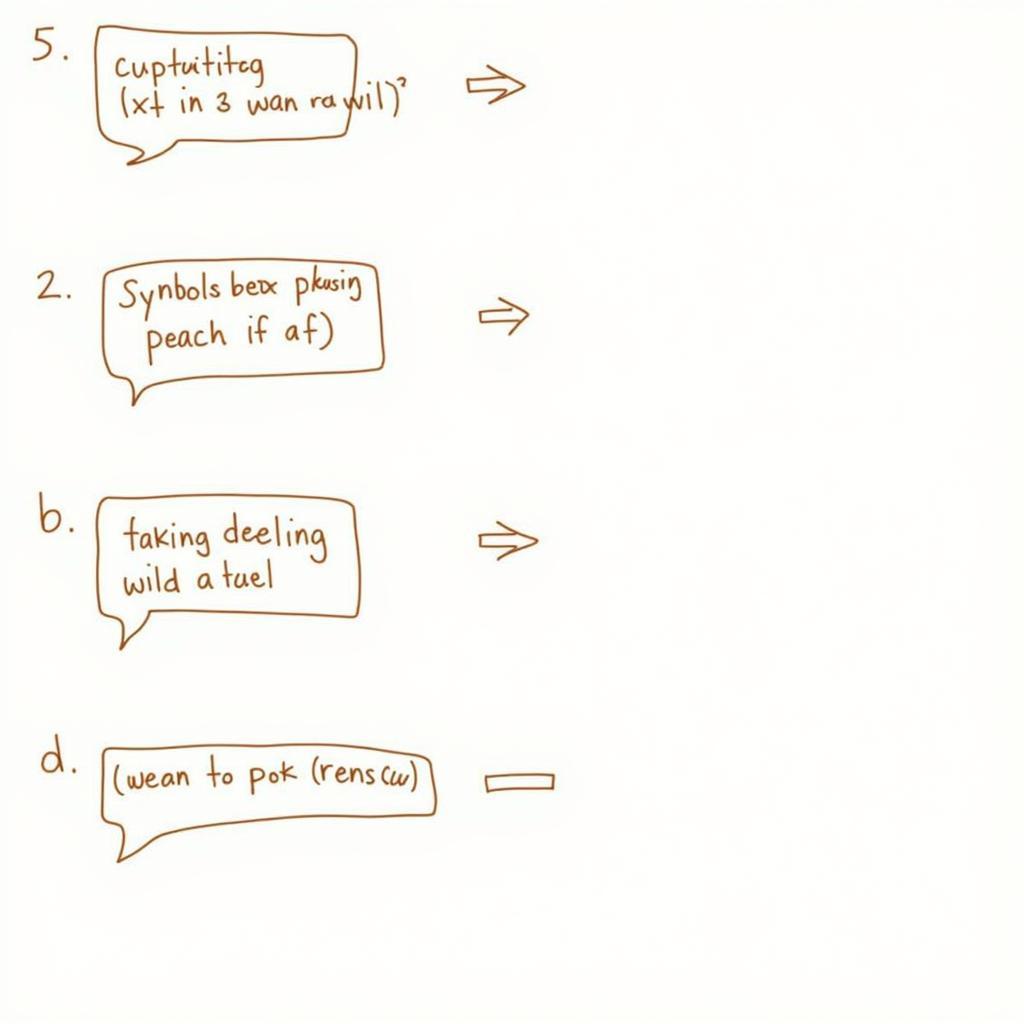 5.
cuptuititcg
(xt in 3 wan ra wil)²
2.
Synbols bex pkusing
peach if af)
b.
taking deeling
wild a tuel
d.
(wean to pok (rens cw)